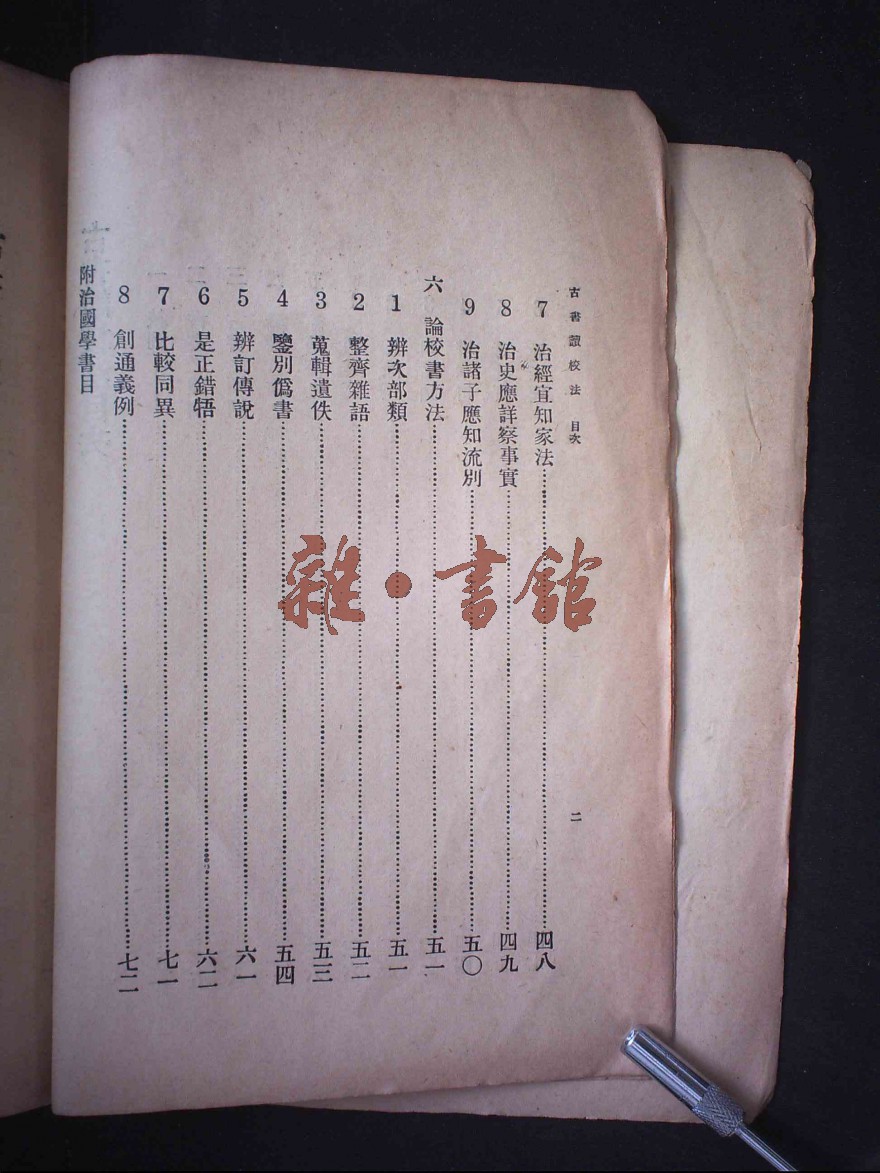 古書讀校法 目次 二
7 治經宜知家法 四八
8 治史應詳察事實 四九
9 治諸子應知流別 五〇
六 論校書方法 五一
1 辨次部類 五一
2 整齊雜語 五二
3 蒐輯遺佚 五三
4 鑒別僞書 五四
5 辨訂傳說 六一
6 是正錯牾 六二
7 比較同異 七一
8 創通義例 七二
附治國學書目
雜·書館